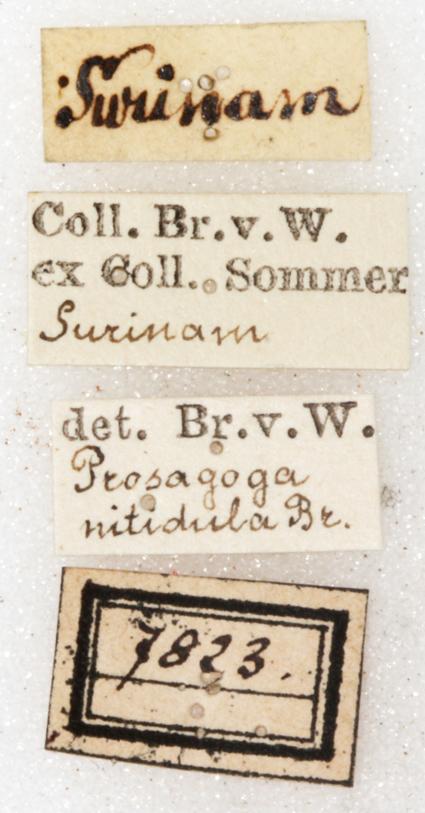 Surinam
Coll. Br.v.W.
ex Coll. Sommer
Surinam
det. Br.v.W.
Prosagoga
nitidula Br.
7823.